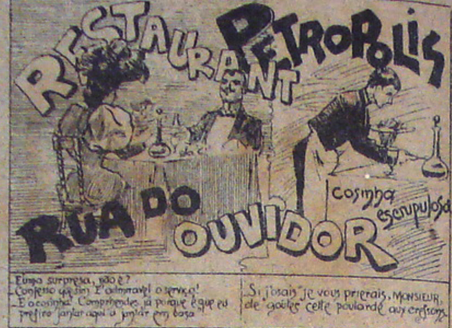 RESTAURANT
PETROPOLIS
RUA DO
OUVIDOR
cosinha
escrupulosa
É uma surpresa, não é?
Confesso que sim. É admiravel o serviço!
E a cosinha! Comprehendes já porque é que eu
prefiro jantar aqui a jantar em casa
Si j'osais je vous prierais, MONSIEUR,
de goûter cette poularde aux cressons